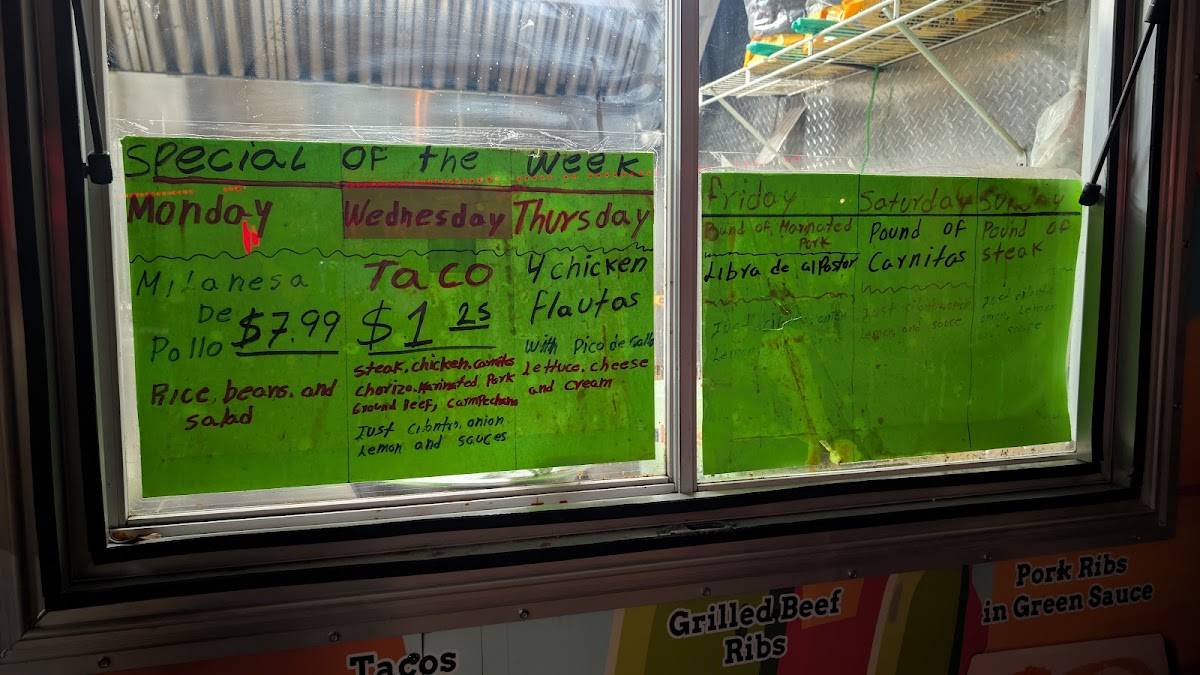 Special of the week
Monday
Milanesa
De $7.99
Pollo
Rice, beans, and
salad
Wednesday
Taco
$1.25
steak, chicken, carnitas
chorizo, Marinated Pork
Ground Beef, campechano
Just cilantro, onion
Lemon and sauces
Thursday
4 chicken
flautas
with Pico de Gallo
Lettuce, cheese
and cream
Friday
of Marinated
Pork
Libra de al Pastor
Just cilantro, onion
Lemon
Saturday
Pound of
Carnitas
Just cilantro, onion
Lemon, and sauce
Sunday
Pound of
steak
Just cilantro
onion, Lemon
sauce
Tacos
Grilled Beef
Ribs
Pork Ribs
in Green Sauce